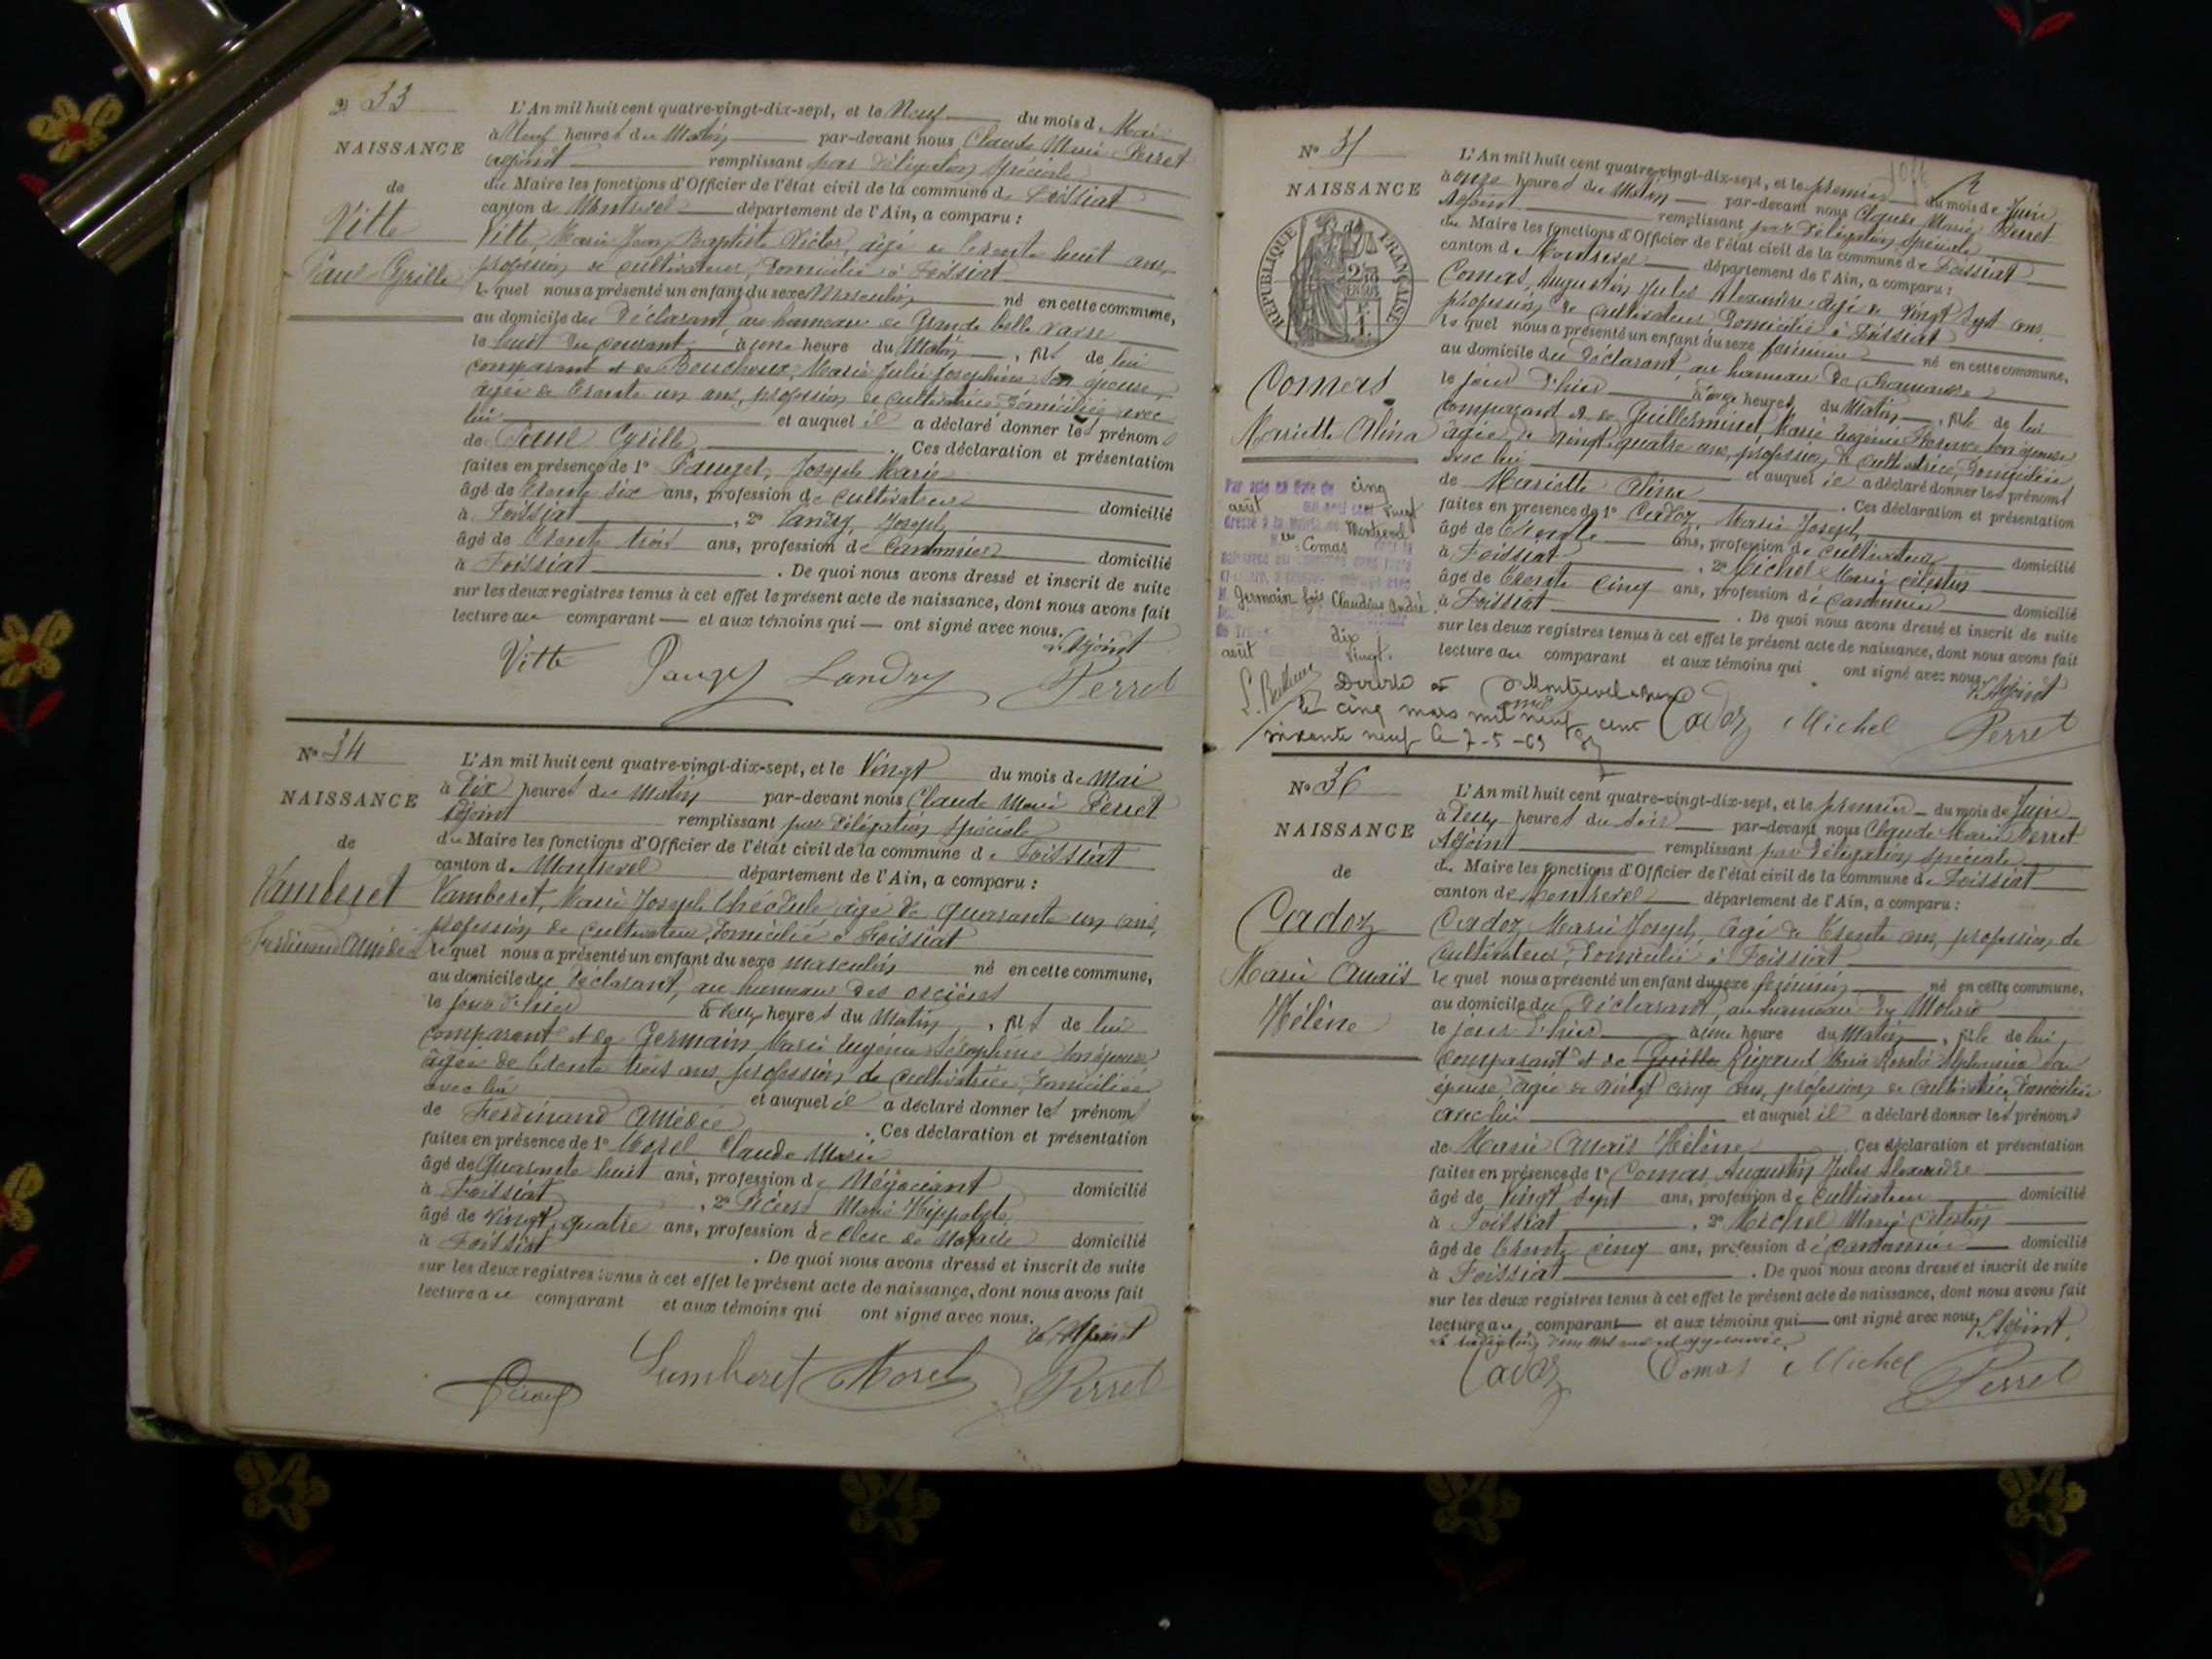 N° 33
NAISSANCE
de
Vitte
Paul Cyrille
L'An mil huit cent quatre-vingt-dix-sept, et le Neuf du mois de Mai
à Neuf heures du Matin par-devant nous Claude Marie Perret
adjoint remplissant par délégation spéciale
du Maire les fonctions d'Officier de l'état civil de la commune de Foissiat
canton de Montrevel département de l'Ain, a comparu :
Vitte, Marie Jean Baptiste Victor, âgé de trente huit ans,
profession de cultivateur, domicilié à Foissiat
lequel nous a présenté un enfant du sexe Masculin né en cette commune,
au domicile du déclarant, au hameau de Grande belle
le huit du courant à une heure du Matin, fils de lui
comparant et de Bouchoux, Marie Julie Joséphine son épouse,
âgée de trente un ans, profession de cultivatrice domiciliée avec
lui et auquel il a déclaré donner les prénoms
de Paul Cyrille. Ces déclaration et présentation
faites en présence de 1° Pauget, Joseph Marie
âgé de trente six ans, profession de cultivateur domicilié
à Foissiat, 2° Landry, Joseph
âgé de trente trois ans, profession de Cantonnier domicilié
à Foissiat. De quoi nous avons dressé et inscrit de suite
sur les deux registres tenus à cet effet le présent acte de naissance, dont nous avons fait
lecture au comparant et aux témoins qui ont signé avec nous.
L'Adjoint
Vitte Pauget Landry Perret
N° 34
NAISSANCE
de
Vamberet
Ferdinand Amédée
L'An mil huit cent quatre-vingt-dix-sept, et le Vingt du mois de Mai
à Dix heures du Matin par-devant nous Claude Marie Perret
Adjoint remplissant par délégation spéciale
du Maire les fonctions d'Officier de l'état civil de la commune de Foissiat
canton de Montrevel département de l'Ain, a comparu :
Vamberet, Marie Joseph Théodule âgé de quarante un ans,
profession de cultivateur, domicilié à Foissiat
lequel nous a présenté un enfant du sexe masculin né en cette commune,
au domicile du déclarant, au hameau des
le jour d'hier à deux heures du Matin, fils de lui
comparant et de Germain, Marie Eugénie Séraphine son épouse
âgée de trente trois ans, profession de cultivatrice, domiciliée
avec lui et auquel il a déclaré donner les prénoms
de Ferdinand Amédée. Ces déclaration et présentation
faites en présence de 1° Morel Claude Marie
âgé de Quarante huit ans, profession de Négociant domicilié
à Foissiat, 2° Marie Hippolyte
âgé de vingt quatre ans, profession de Clerc de Notaire domicilié
à Foissiat. De quoi nous avons dressé et inscrit de suite
sur les deux registres tenus à cet effet le présent acte de naissance, dont nous avons fait
lecture au comparant et aux témoins qui ont signé avec nous.
L'Adjoint
Vamberet Morel Perret
N° 35
NAISSANCE
de
RÉPUBLIQUE FRANÇAISE
Comas
Mariette Alina
L'An mil huit cent quatre-vingt-dix-sept, et le premier du mois de Juin
à onze heures du Matin par-devant nous Claude Marie Perret
Adjoint remplissant par délégation spéciale
du Maire les fonctions d'Officier de l'état civil de la commune de Foissiat
canton de Montrevel département de l'Ain, a comparu :
Comas, Augustin Jules Alexandre âgé de vingt sept ans
profession de cultivateur domicilié à Foissiat
lequel nous a présenté un enfant du sexe féminin né en cette commune,
au domicile du déclarant, au hameau de
le jour d'hier à onze heures du Matin, fille de lui
comparant et de Guillermin, Marie Eugénie Florence son épouse
âgée de vingt quatre ans, profession de cultivatrice, domiciliée
avec lui et auquel il a déclaré donner les prénoms
de Mariette Alina. Ces déclaration et présentation
faites en présence de 1° Cadoz, Marie Joseph
âgé de trente ans, profession de cultivateur domicilié
à Foissiat, 2° Michel Marie Célestin
âgé de trente cinq ans, profession de cantonnier domicilié
à Foissiat. De quoi nous avons dressé et inscrit de suite
sur les deux registres tenus à cet effet le présent acte de naissance, dont nous avons fait
lecture au comparant et aux témoins qui ont signé avec nous.
L'Adjoint
Cadoz Michel Perret
Par acte en date du cinq
août mil neuf cent vingt
dressé à la mairie de Montrevel
Comas
M. Germain Claudius André
dix
août vingt.
Décédée à Montrevel
le cinq mars mil neuf cent
soixante neuf le 7-5-69
N° 36
NAISSANCE
de
Cadoz
Marie Anaïs
Hélène
L'An mil huit cent quatre-vingt-dix-sept, et le premier du mois de Juin
à deux heures du soir par-devant nous Claude Marie Perret
Adjoint remplissant par délégation spéciale
du Maire les fonctions d'Officier de l'état civil de la commune de Foissiat
canton de Montrevel département de l'Ain, a comparu :
Cadoz, Marie Joseph, âgé de trente ans, profession de
cultivateur, domicilié à Foissiat
lequel nous a présenté un enfant du sexe féminin né en cette commune,
au domicile du déclarant, au hameau du
le jour d'hier à une heure du Matin, fille de lui
comparant et de Guille Rigaud Marie Rosalie Alphonsine son
épouse âgée de vingt cinq ans, profession de cultivatrice, domiciliée
avec lui et auquel il a déclaré donner les prénoms
de Marie Anaïs Hélène. Ces déclaration et présentation
faites en présence de 1° Comas, Augustin Jules Alexandre
âgé de vingt sept ans, profession de cultivateur domicilié
à Foissiat, 2° Michel Marie Célestin
âgé de trente cinq ans, profession de cantonnier domicilié
à Foissiat. De quoi nous avons dressé et inscrit de suite
sur les deux registres tenus à cet effet le présent acte de naissance, dont nous avons fait
lecture au comparant et aux témoins qui ont signé avec nous.
L'Adjoint
Cadoz Comas Michel Perret